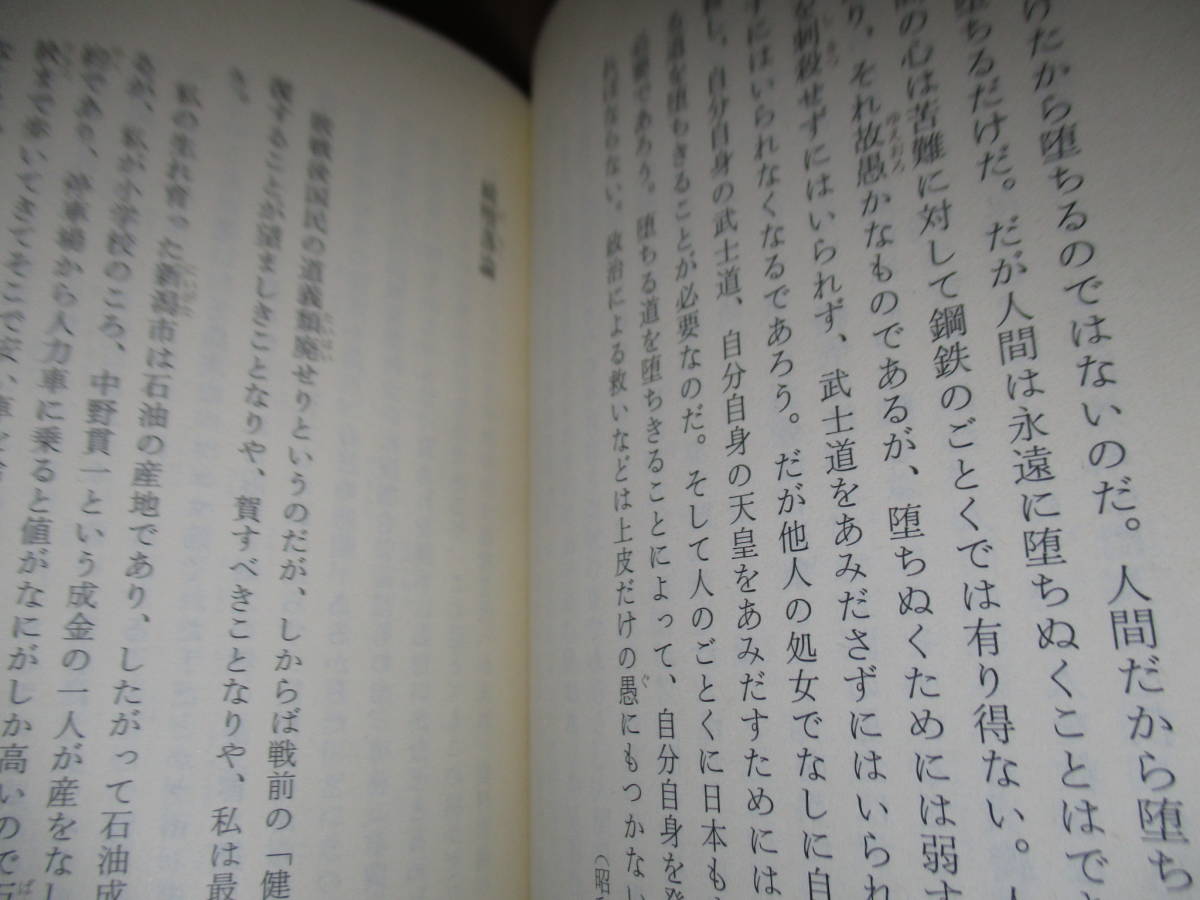 けたから堕ちるのではないのだ。人間だから堕ち
堕ちるだけだ。だが人間は永遠に堕ちぬくことはでき
間の心は苦難に対して鋼鉄のごとくでは有り得ない。人
り、それ故愚かなものであるが、堕ちぬくためには弱す
を刺殺せずにはいられず、武士道をあみださずにはいられ
ずにはいられなくなるであろう。だが他人の処女でなしに自
殺し、自分自身の武士道、自分自身の天皇をあみだすためには
る道を堕ちきることが必要なのだ。そして人のごとくに日本も
必要であろう。堕ちる道を堕ちきることによって、自分自身を発
ればならない。政治による救いなどは上皮だけの愚にもつかない
(昭
続堕落論
敗戦後国民の道義頽廃せりというのだが、しからば戦前の「健
復することが望ましきことなりや、賀すべきことなりや、私は最
う。
私の生れ育った新潟市は石油の産地であり、したがって石油成
るが、私が小学校のころ、中野貫一という成金の一人が産をなし
約であり、停車場から人力車に乗ると値がなにがしか高いので万
狭まで歩いてきてそこで安い車を